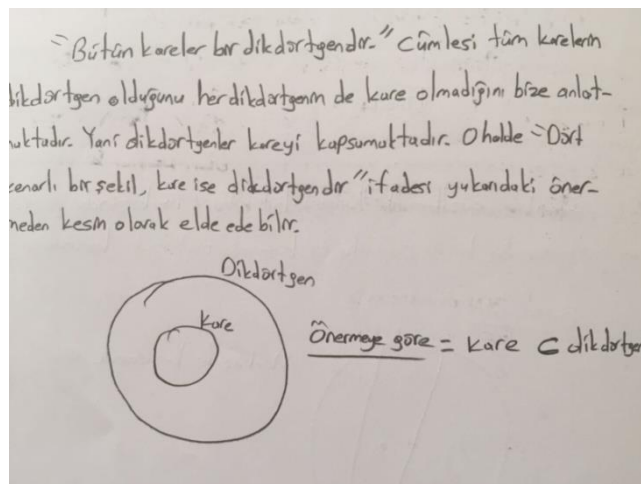 "Bütün kareler bir dikdörtgendir." Cümlesi tüm karelerin
dikdörtgen olduğunu her dikdörtgenin de kare olmadığını bize anlat-
maktadır. Yani dikdörtgenler kareyi kapsamaktadır. O halde "Dört
kenarlı bir şekil, kare ise dikdörtgendir" ifadesi yukarıdaki öner-
meden kesin olarak elde edebilir.
Dikdörtgen
Kare
Önermeye göre = kare ⊂ dikdörtgen